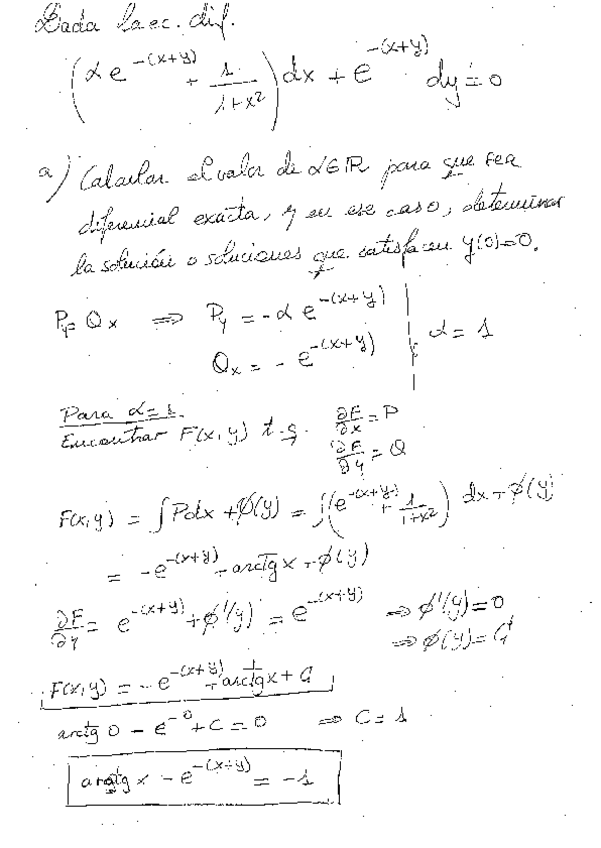 Dada la ec. dif.
(α e^-(x+y) + 1/(1+x²)) dx + e^-(x+y) dy = 0
a) Calcular el valor de α∈ℝ para que sea
diferencial exacta, y en ese caso, determinar
la solución o soluciones que satisfacen y(0)=0.
Py = Qx ⇒ Py = -α e^-(x+y)
Qx = - e^-(x+y) | α = 1
Para α=1.
Encontrar F(x,y) t.q. ∂F/∂x = P
∂F/∂y = Q
F(x,y) = ∫Pdx + φ(y) = ∫(e^-(x+y) + 1/(1+x²)) dx + φ(y)
= -e^-(x+y) + arctg x + φ(y)
∂F/∂y = e^-(x+y) + φ'(y) = e^-(x+y) ⇒ φ'(y) = 0
⇒ φ(y) = C
F(x,y) = - e^-(x+y) + arctg x + C
arctg 0 - e^-0 + C = 0 ⇒ C = 1
arctg x - e^-(x+y) = -1